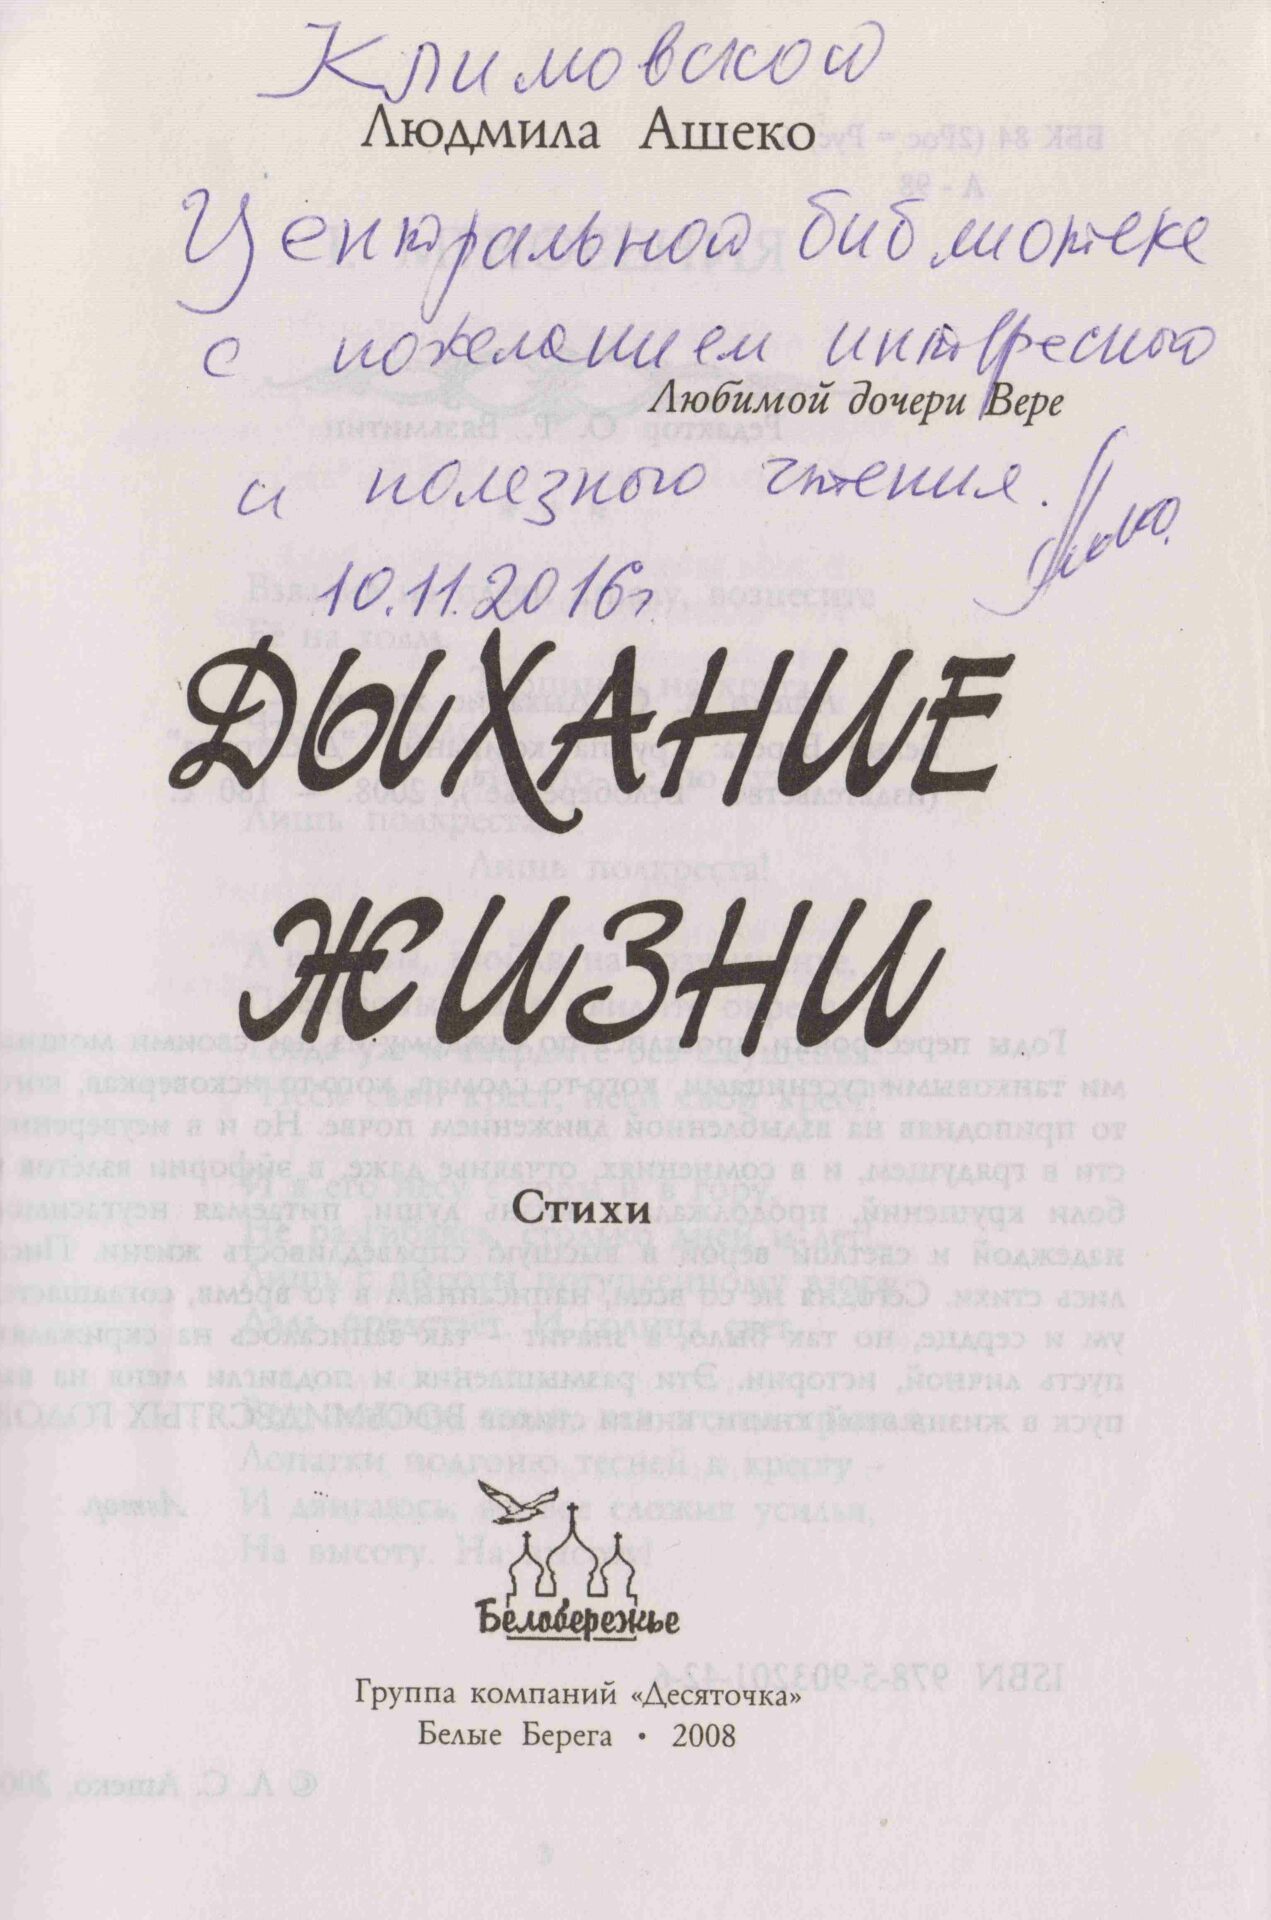 Климовской
Людмила Ашеко
Центральной библиотеке
с пожеланием интересного
Любимой дочери Вере
и полезного чтения.
10.11.2016г
ДЫХАНИЕ
ЖИЗНИ
Стихи
Белобережье
Группа компаний «Десяточка»
Белые Берега • 2008